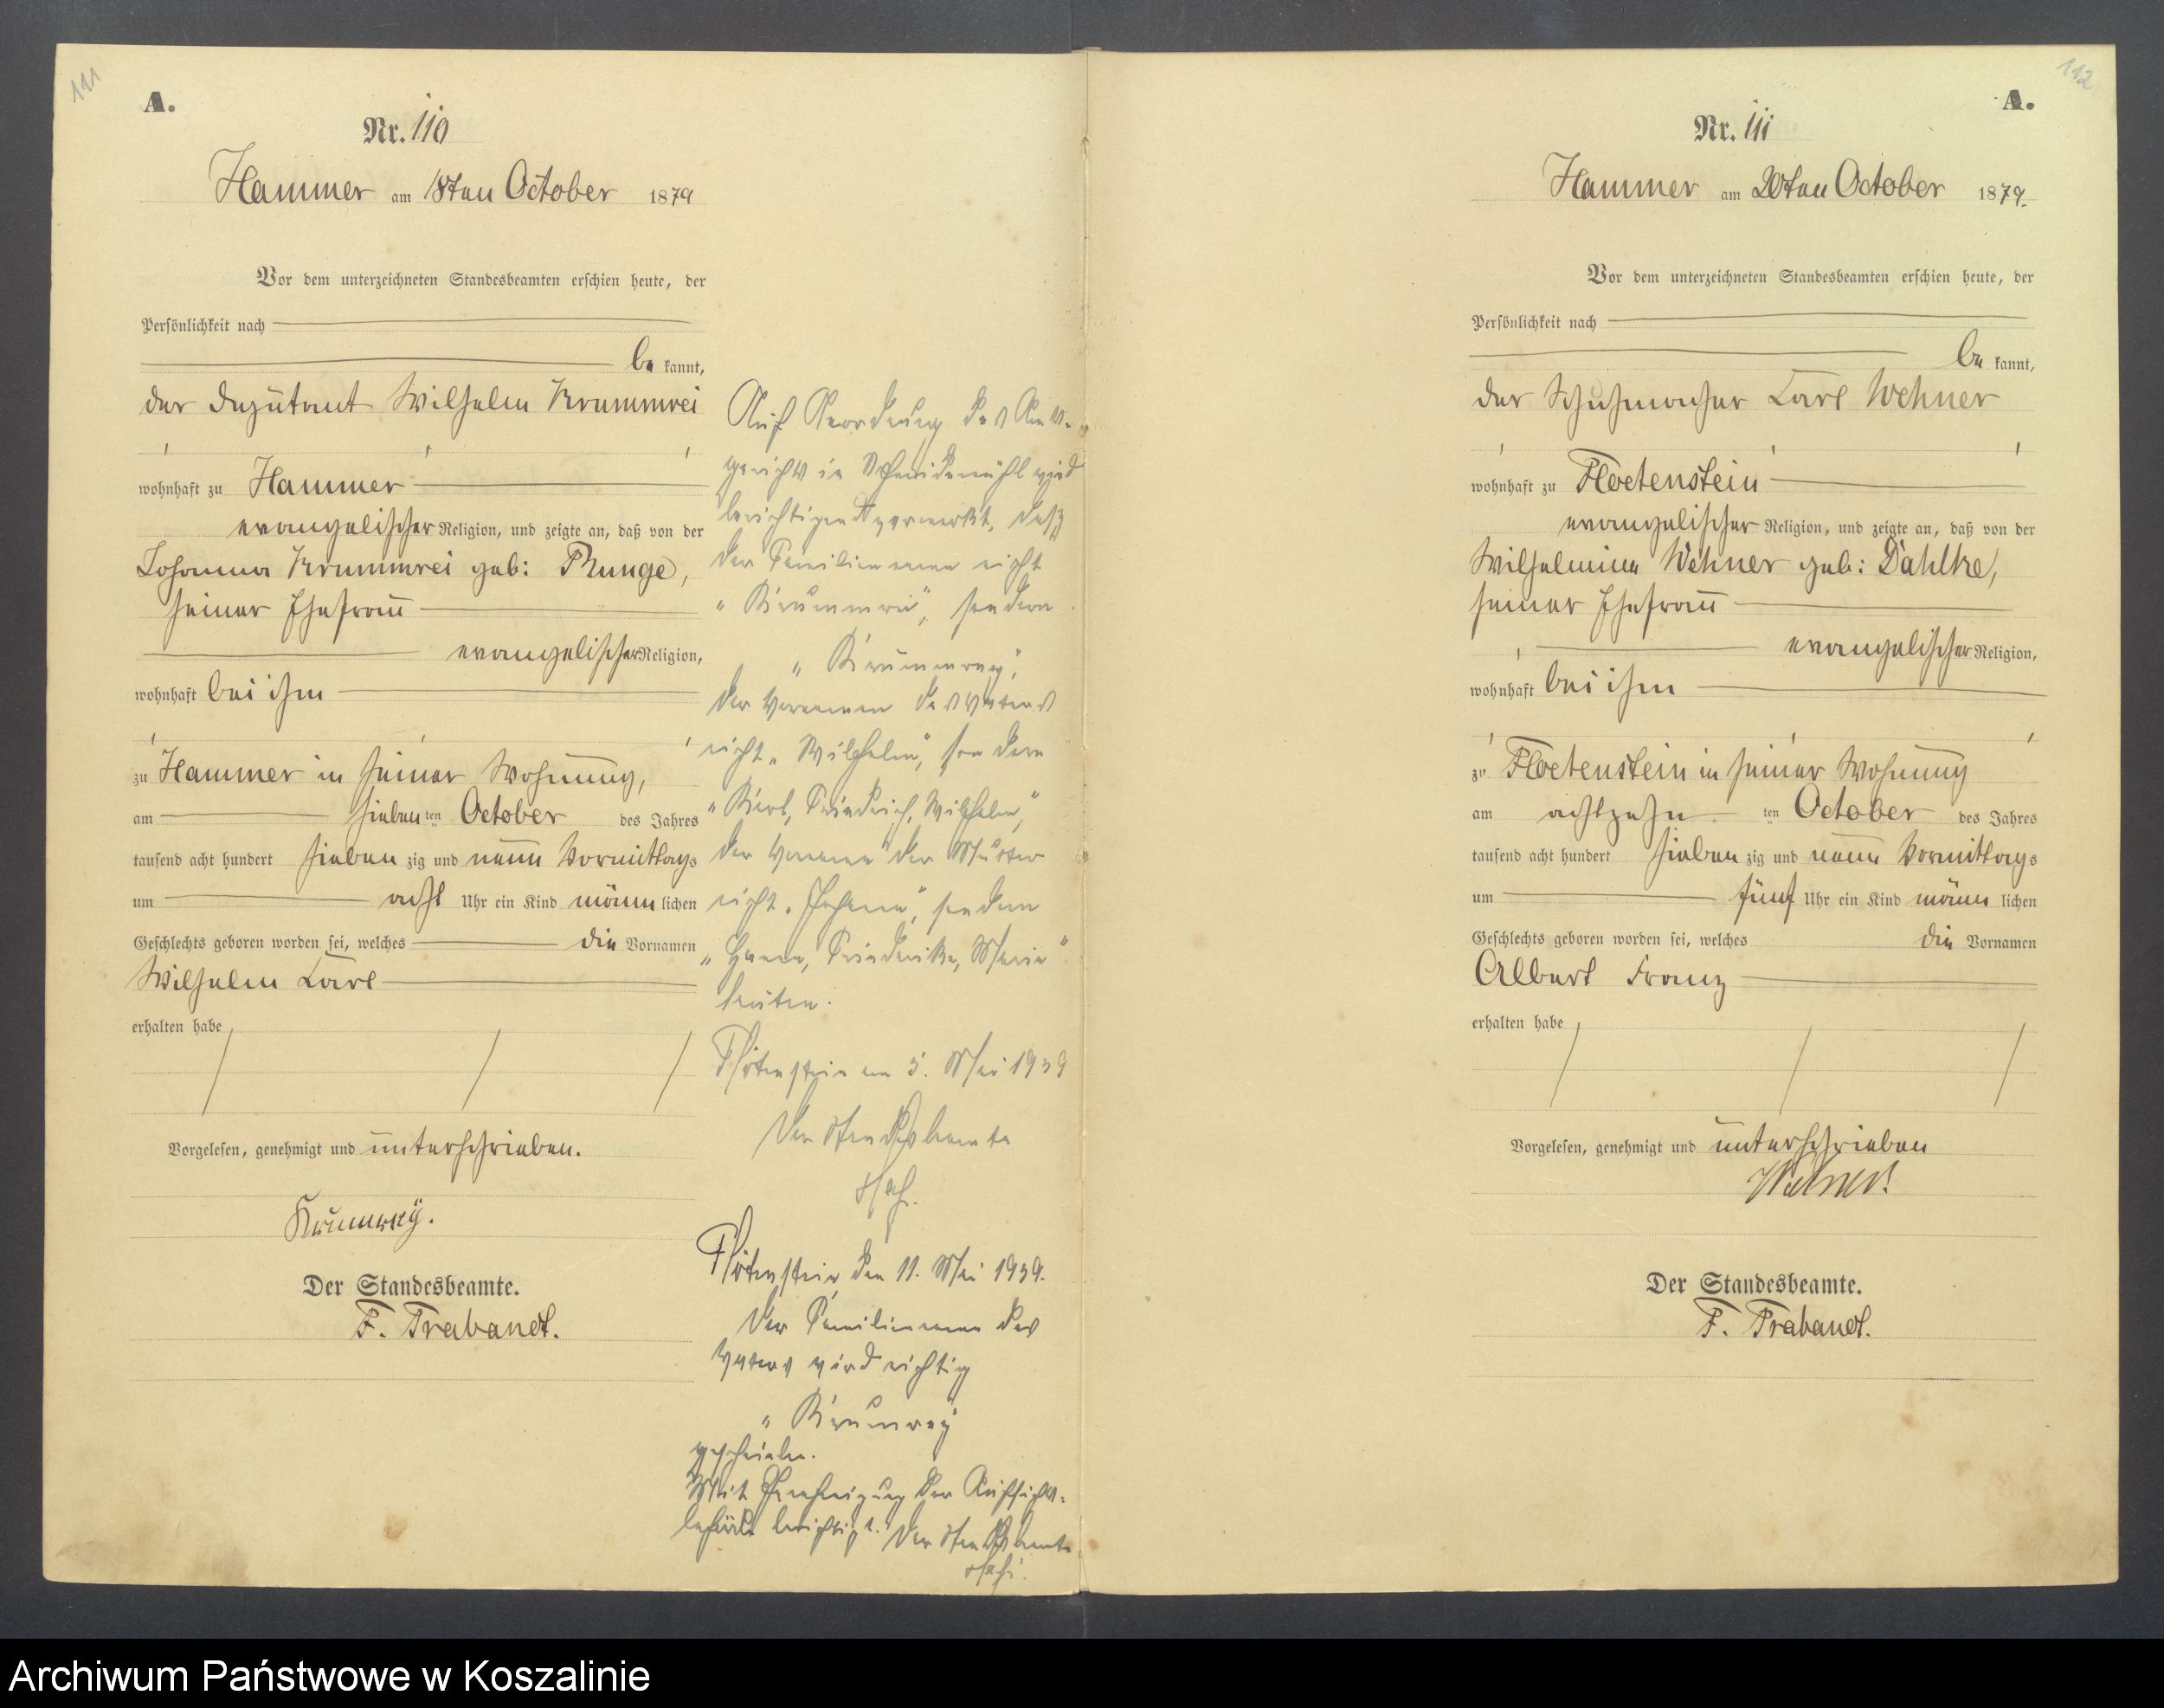 111
A.
Nr. 110
Hammer am 18ten October 1879
Vor dem unterzeichneten Standesbeamten erschien heute, der
Persönlichkeit nach
be kannt,
der Deputant Wilhelm Krummrei
wohnhaft zu Hammer
evangelischer Religion, und zeigte an, daß von der
Johanna Krummrei geb: Runge,
seiner Ehefrau
evangelischer Religion,
wohnhaft bei ihm
zu Hammer in seiner Wohnung,
am sieben ten October des Jahres
tausend acht hundert sieben zig und neun Vormittags
um acht Uhr ein Kind männ lichen
Geschlechts geboren worden sei, welches die Vornamen
Wilhelm Carl
erhalten habe
Vorgelesen, genehmigt und unterschrieben.
Krumrey.
Der Standesbeamte.
F. Trabandt.
Auf Anordnung des Amts-
gerichts in Schneidemühl wird
berichtigend vermerkt, daß
der Familienname nicht
„Krummrei", sondern
„Krummrey",
der Vorname des Vaters
nicht „Wilhelm", sondern
„Karl, Friedrich, Wilhelm",
der Vorname der Mutter
nicht „Johanna", sondern
„Hanna, Friederike, Marie"
lauten.
Flötenstein am 5. Mai 1939
Der Standesbeamte
Flötenstein, den 11. Mai 1939.
Der Familienname des
Vaters wird richtig
„Krumrey"
geschrieben.
Mit Genehmigung der Aufsichts-
behörde berichtigt. Der Standesbeamte
112
A.
Nr. 111
Hammer am 20ten October 1879.
Vor dem unterzeichneten Standesbeamten erschien heute, der
Persönlichkeit nach
be kannt,
der Schuhmacher Carl Wehner
wohnhaft zu Floetenstein
evangelischer Religion, und zeigte an, daß von der
Wilhelmine Wehner geb: Dahlke,
seiner Ehefrau
evangelischer Religion,
wohnhaft bei ihm
zu Floetenstein in seiner Wohnung
am achtzehn ten October des Jahres
tausend acht hundert sieben zig und neun Vormittags
um fünf Uhr ein Kind männ lichen
Geschlechts geboren worden sei, welches die Vornamen
Albert Franz
erhalten habe
Vorgelesen, genehmigt und unterschrieben
Wehner.
Der Standesbeamte.
F. Trabandt.
Archiwum Państwowe w Koszalinie